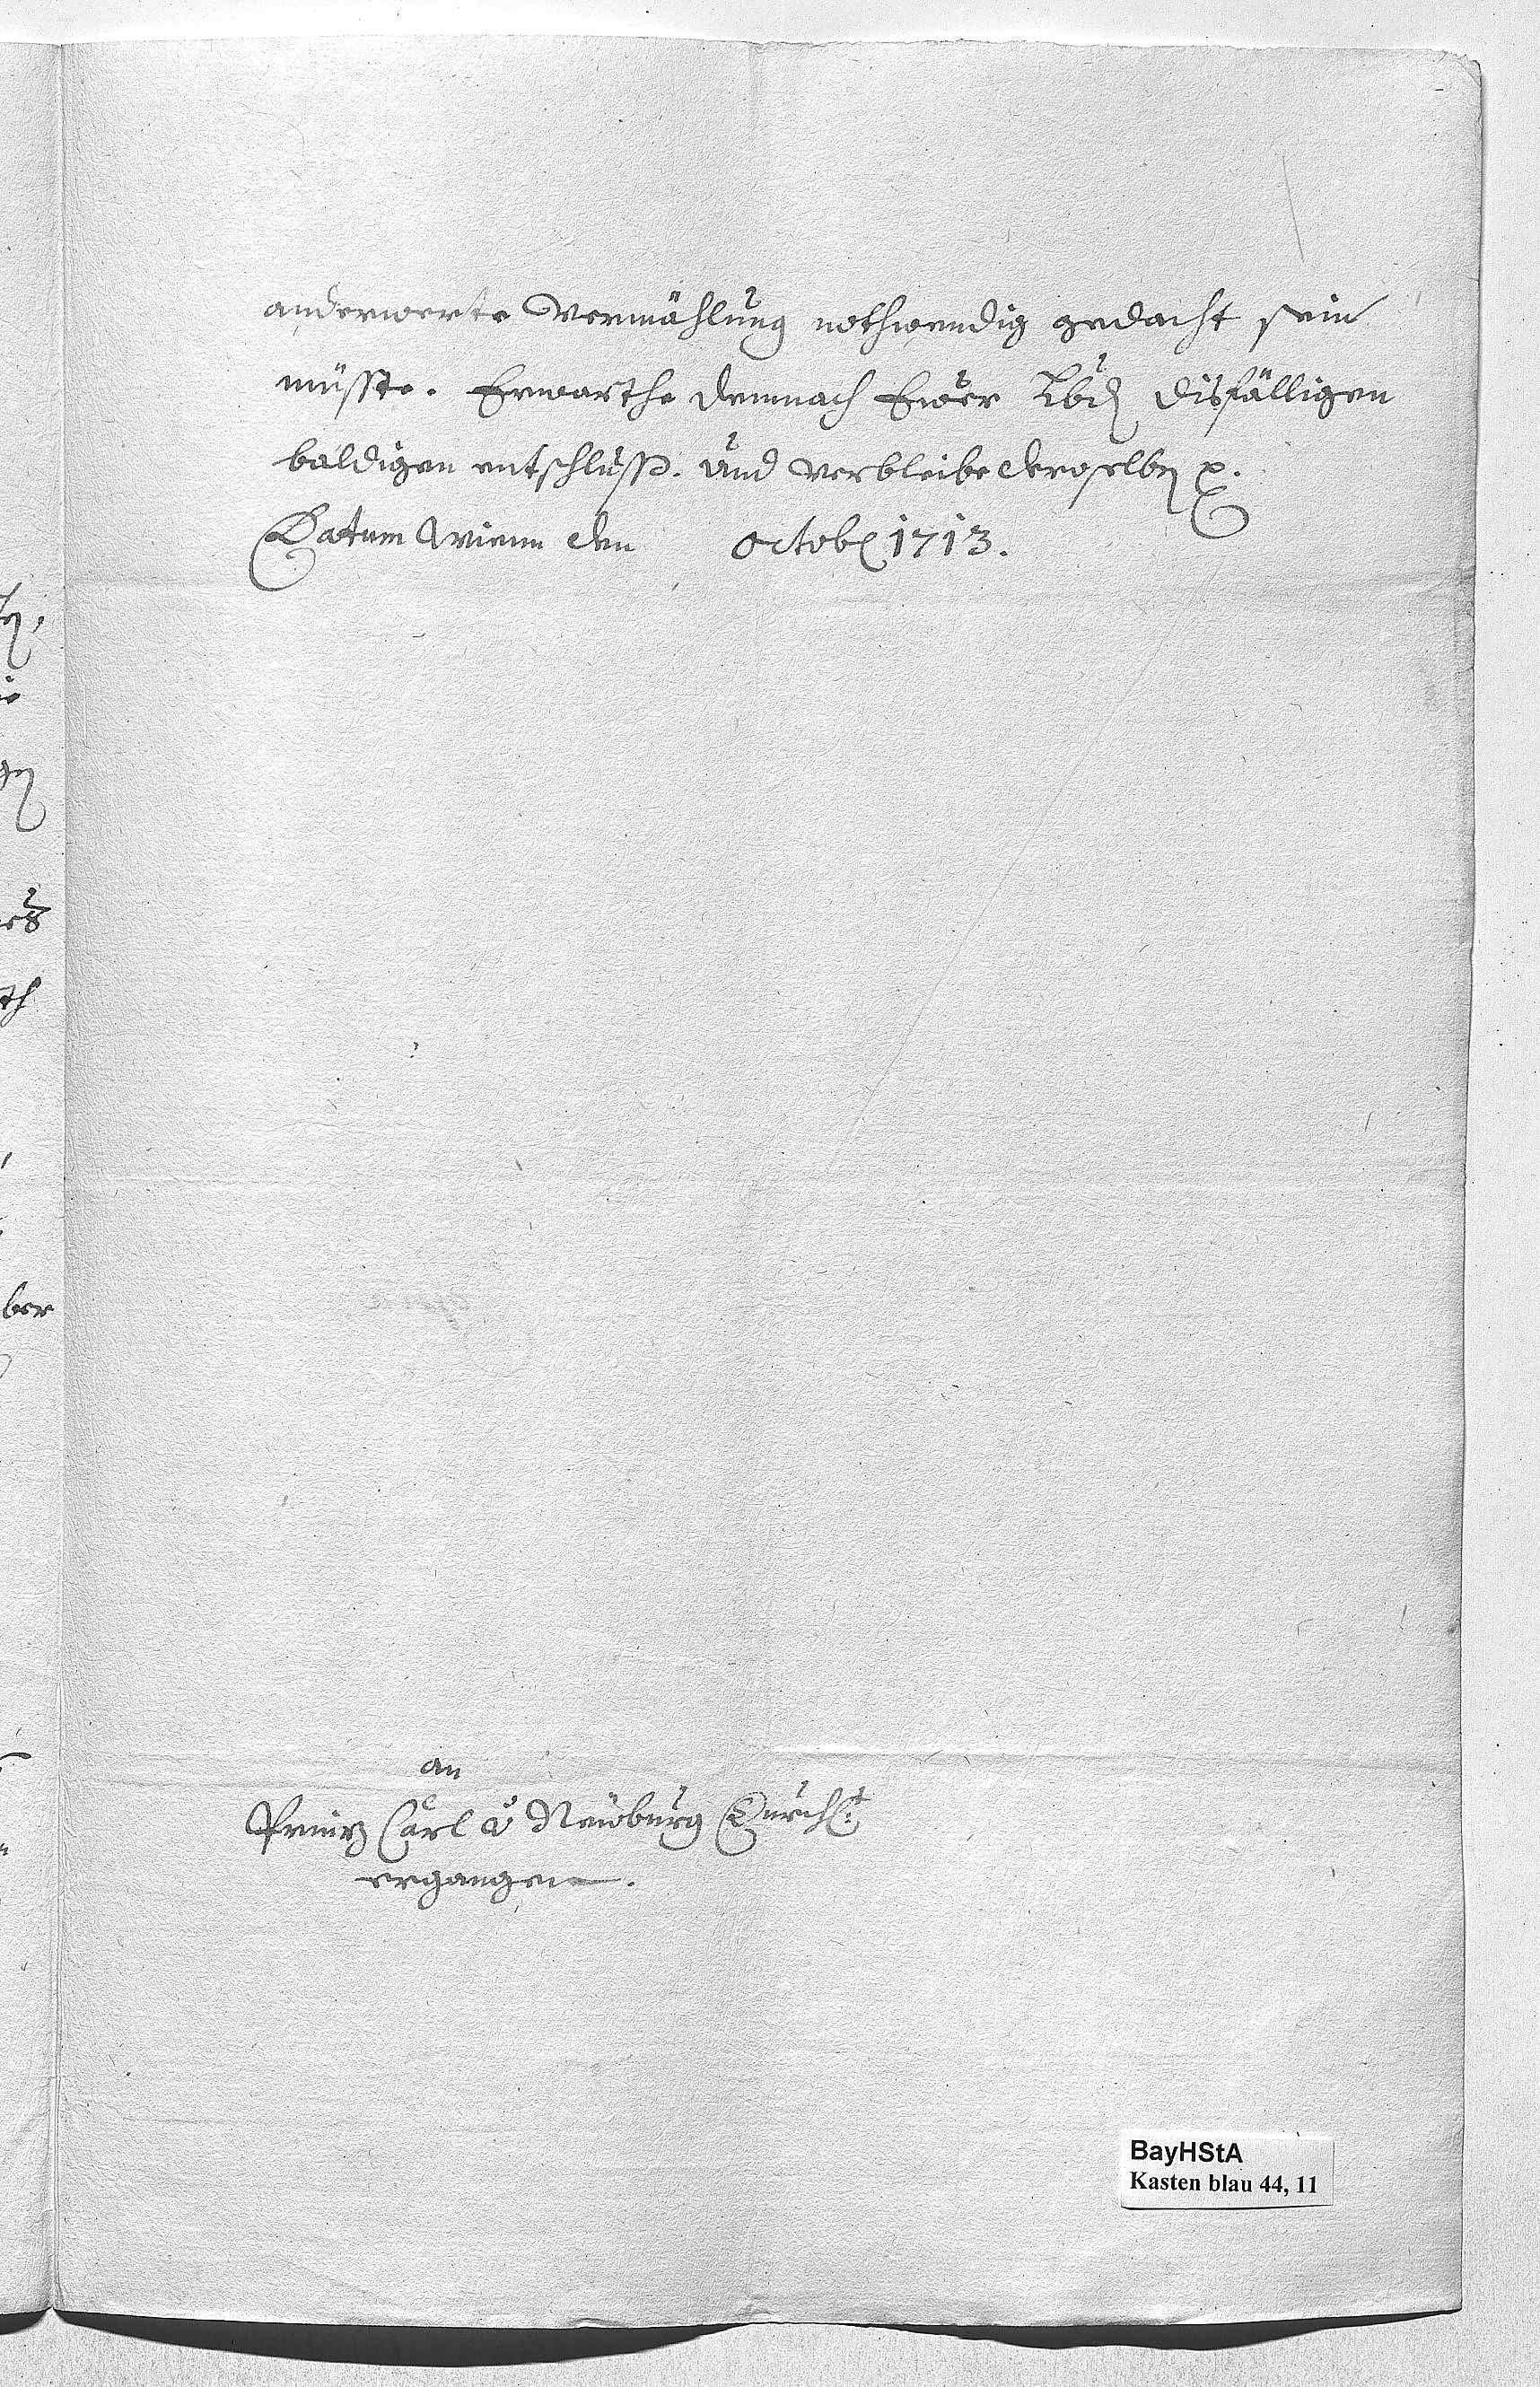 anderwerte Vermählung nothwendig gedacht sein
müsste. Erwarthe demnach Ewer Lbd disfälligen
baldigen entschluß. und verbleibe deroselben p.
Datum Wienn den octob 1713.
an
Prinz Carl v Neuburg Durchl:t
ergangen.
ber
BayHStA
Kasten blau 44, 11